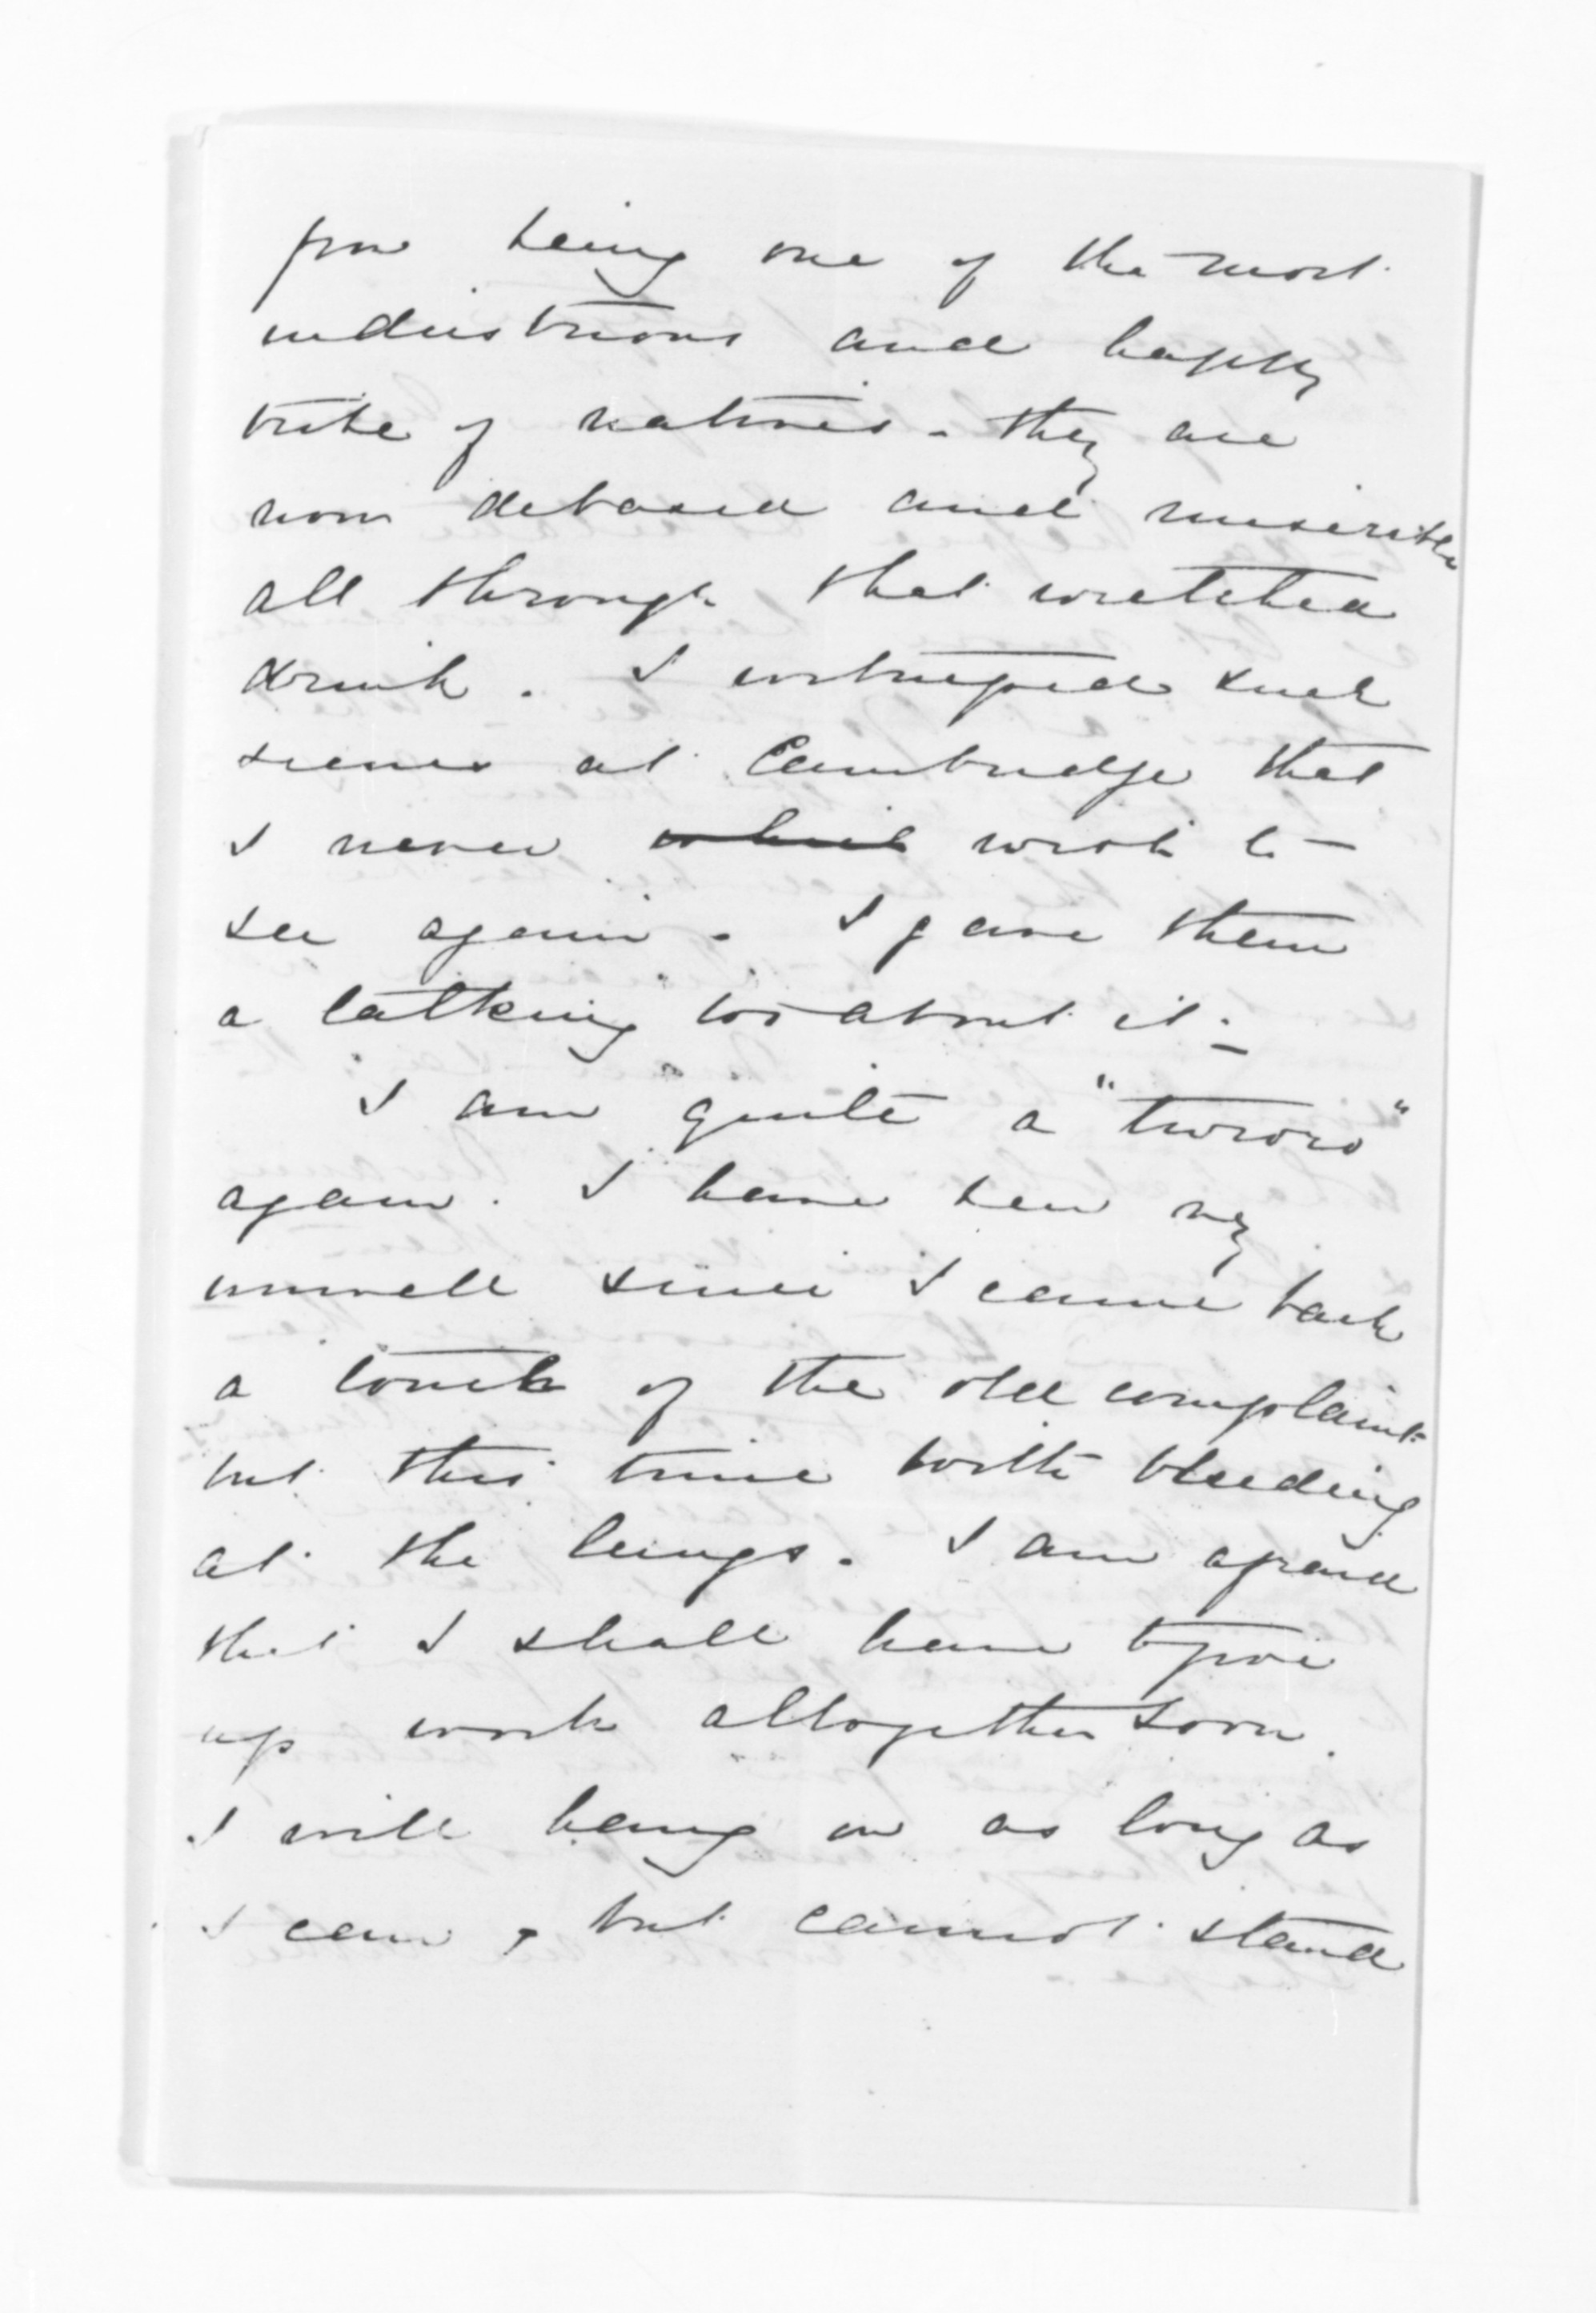 from being one of the most
industrious and happy
tribe of natives - they are
now debased and miserable
all through that wretched
drink. I witnessed such
scenes at Cambridge that
I never wish to
see again. I gave them
a talking to about it.
I am quite a "turoro"
again. I have been very
unwell since I came back
a touch of the old complaint
but this time with bleeding
at the lungs. I am afraid
that I shall have to give
up work altogether soon.
I will hang on as long as
I can, but cannot stand